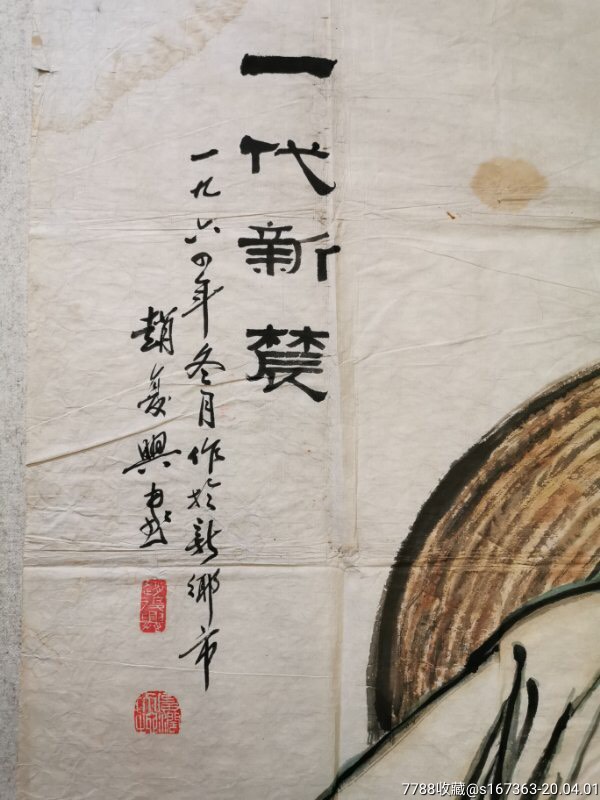 一代新辳
一九六四年冬月作於新鄉市
趙复興畫
7788收藏@s167363-20.04.01